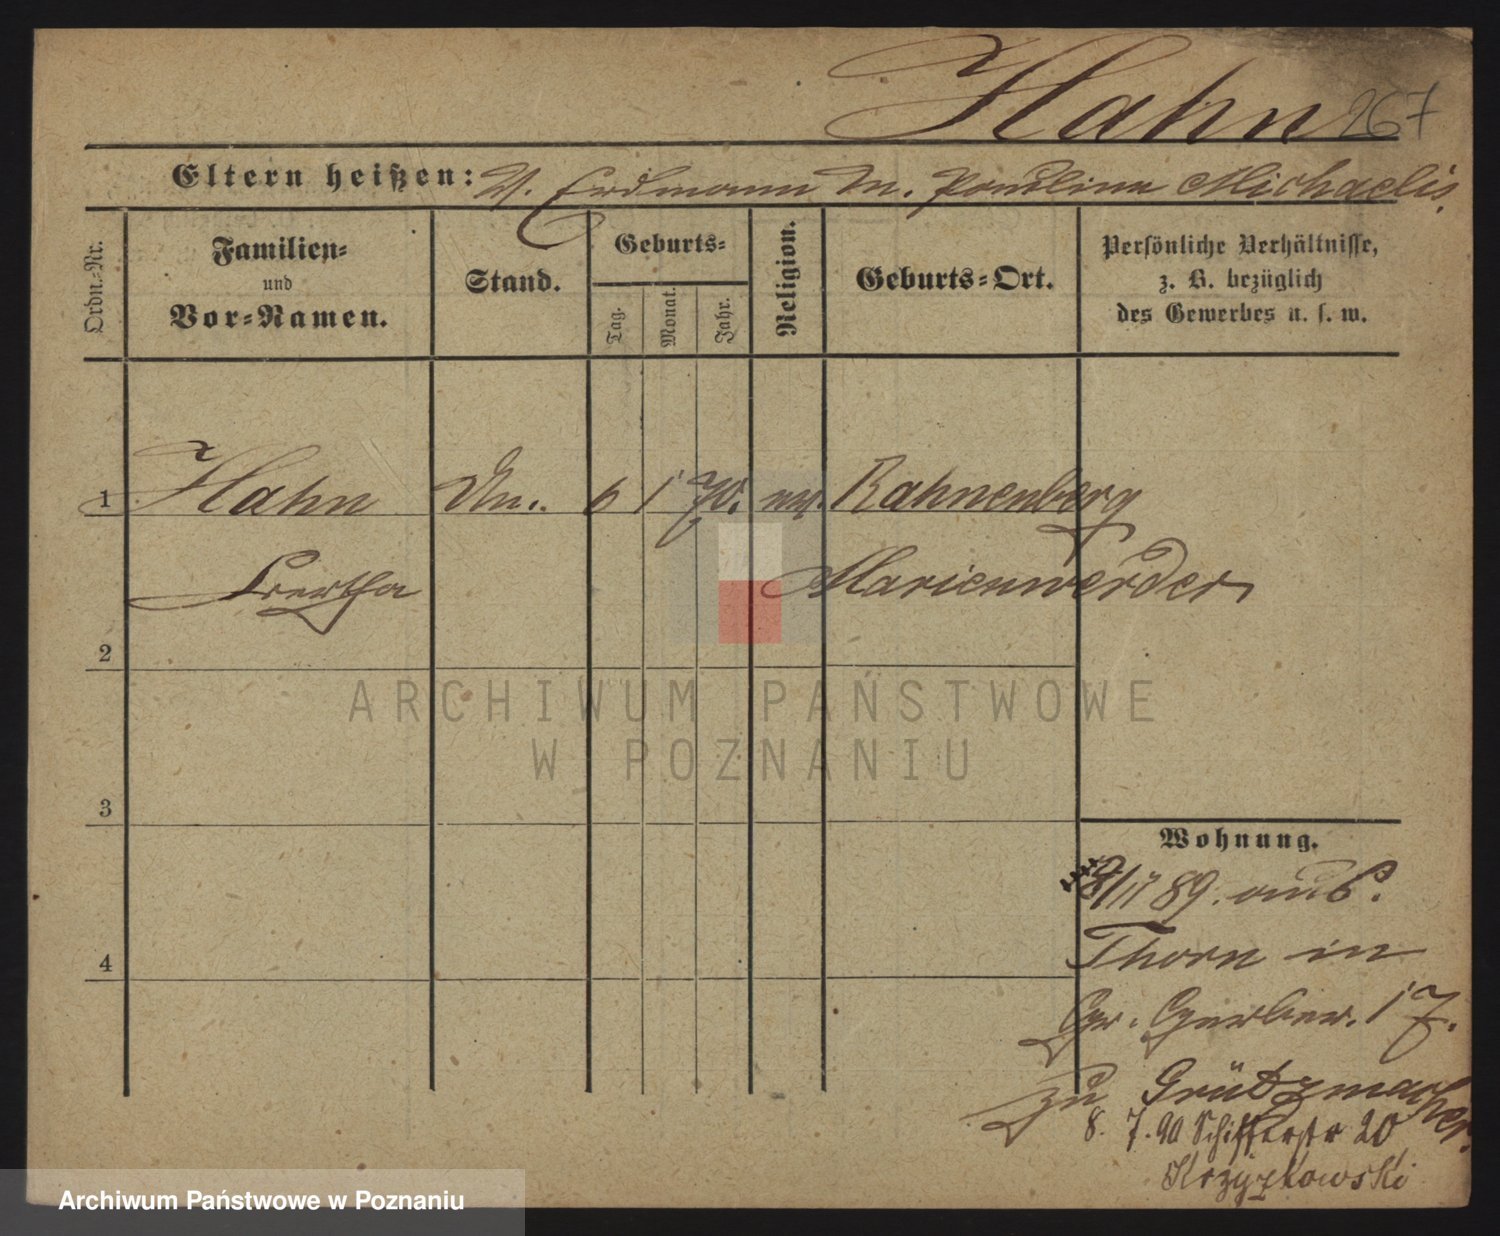 Hahn 267
Eltern heißen: V. Erdmann M. Paulina Michaelis.
Ordn.-Nr.
Familien-
und
Vor-Namen.
Stand.
Geburts-
Tag.
Monat.
Jahr.
Religion.
Geburts-Ort.
Persönliche Verhältnisse,
z. B. bezüglich
des Gewerbes u. s. w.
1 Hahn 6 1 70. Rahnenberg
Bertha Marienwerder
2
3
4
Wohnung.
89. aus
Thorn in
Gr. Gerber. 17.
zu Grützmacher.
8. 7. 90 Schifferstr 20
Krzyzkowski
ARCHIWUM PAŃSTWOWE
W POZNANIU
Archiwum Państwowe w Poznaniu